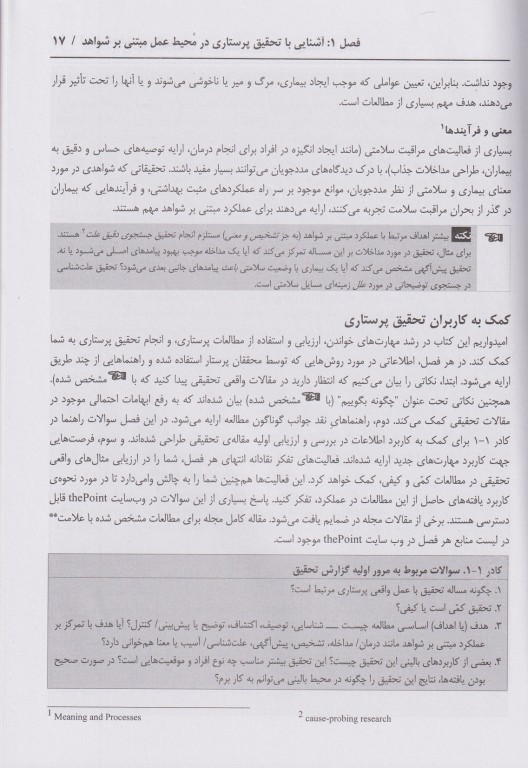 فصل ۱: آشنایی با تحقیق پرستاری در محیط عمل مبتنی بر شواهد / ۱۷
وجود نداشت. بنابراین، تعیین عواملی که موجب ایجاد بیماری، مرگ و میر یا ناخوشی می‌شوند و یا آنها را تحت تأثیر قرار
می‌دهند، هدف مهم بسیاری از مطالعات است.
معنی و فرآیندها۱
بسیاری از فعالیت‌های مراقبت سلامتی (مانند ایجاد انگیزه در افراد برای انجام درمان، ارایه توصیه‌های حساس و دقیق به
بیماران، طراحی مداخلات جذاب)، با درک دیدگاه‌های مددجویان می‌توانند بسیار مفید باشند. تحقیقاتی که شواهدی در مورد
معنای بیماری و سلامتی از نظر مددجویان، موانع موجود بر سر راه عملکردهای مثبت بهداشتی، و فرآیندهایی که بیماران
در گذر از بحران مراقبت سلامت تجربه می‌کنند، ارایه می‌دهند برای عملکرد مبتنی بر شواهد مهم هستند.
نکته بیشتر اهداف مرتبط با عملکرد مبتنی بر شواهد (به جز تشخیص و معنی) مستلزم انجام تحقیق جستجوی دقیق علت۲ هستند.
برای مثال، تحقیق در مورد مداخلات بر این مساله تمرکز می‌کند که آیا یک مداخله موجب بهبود پیامدهای اصلی می‌شود یا نه.
تحقیق پیش‌آگهی مشخص می‌کند که آیا یک بیماری یا وضعیت سلامتی باعث پیامدهای جانبی بعدی می‌شود؟ تحقیق علت‌شناسی
در جستجوی توضیحاتی در مورد علل زمینه‌ای مسایل سلامتی است.
کمک به کاربران تحقیق پرستاری
امیدواریم این کتاب در رشد مهارت‌های خواندن، ارزیابی و استفاده از مطالعات پرستاری، و انجام تحقیق پرستاری به شما
کمک کند. در هر فصل، اطلاعاتی در مورد روش‌هایی که توسط محققان پرستار استفاده شده و راهنماهایی از چند طریق
ارایه می‌شود. ابتدا، نکاتی را بیان می‌کنیم که انتظار دارید در مقالات واقعی تحقیقی پیدا کنید که با ☜ مشخص شده).
همچنین نکاتی تحت عنوان "چگونه بگوییم" (با ☜ مشخص شده) بیان شده‌اند که به رفع ابهامات احتمالی موجود در
مقالات تحقیقی کمک می‌کند. دوم، راهنماهای نقد جوانب گوناگون مطالعه ارایه می‌شود. در این فصل سوالات راهنما در
کادر ۱-۱ برای کمک به کاربرد اطلاعات در بررسی و ارزیابی اولیه مقاله‌ی تحقیقی طراحی شده‌اند. و سوم، فرصت‌هایی
جهت کاربرد مهارت‌های جدید ارایه شده‌اند. فعالیت‌های تفکر نقادانه انتهای هر فصل، شما را در ارزیابی مثال‌های واقعی
تحقیقی در مطالعات کمّی و کیفی، کمک خواهد کرد. این فعالیت‌ها هم‌چنین شما را به چالش وامی‌دارد تا در مورد نحوه‌ی
کاربرد یافته‌های حاصل از این مطالعات در عملکرد، تفکر کنید. پاسخ بسیاری از این سوالات در وب‌سایت thePoint قابل
دسترسی هستند. برخی از مقالات مجله در ضمایم یافت می‌شود. مقاله کامل مجله برای مطالعات مشخص شده با علامت**
در لیست منابع هر فصل در وب سایت thePoint موجود است.
کادر ۱-۱. سوالات مربوط به مرور اولیه گزارش تحقیق
۱. چگونه مساله تحقیق با عمل واقعی پرستاری مرتبط است؟
۲. تحقیق کمّی است یا کیفی؟
۳. هدف (یا اهداف) اساسی مطالعه چیست ـــ شناسایی، توصیف، اکتشاف، توضیح یا پیش‌بینی/ کنترل؟ آیا هدف با تمرکز بر
عملکرد مبتنی بر شواهد مانند درمان/ مداخله، تشخیص، پیش‌آگهی، علت‌شناسی/ آسیب یا معنا هم‌خوانی دارد؟
۴. بعضی از کاربردهای بالینی این تحقیق چیست؟ این تحقیق بیشتر مناسب چه نوع افراد و موقعیت‌هایی است؟ در صورت صحیح
بودن یافته‌ها، نتایج این تحقیق را چگونه در محیط بالینی می‌توانم به کار برم؟
1 Meaning and Processes
2 cause-probing research